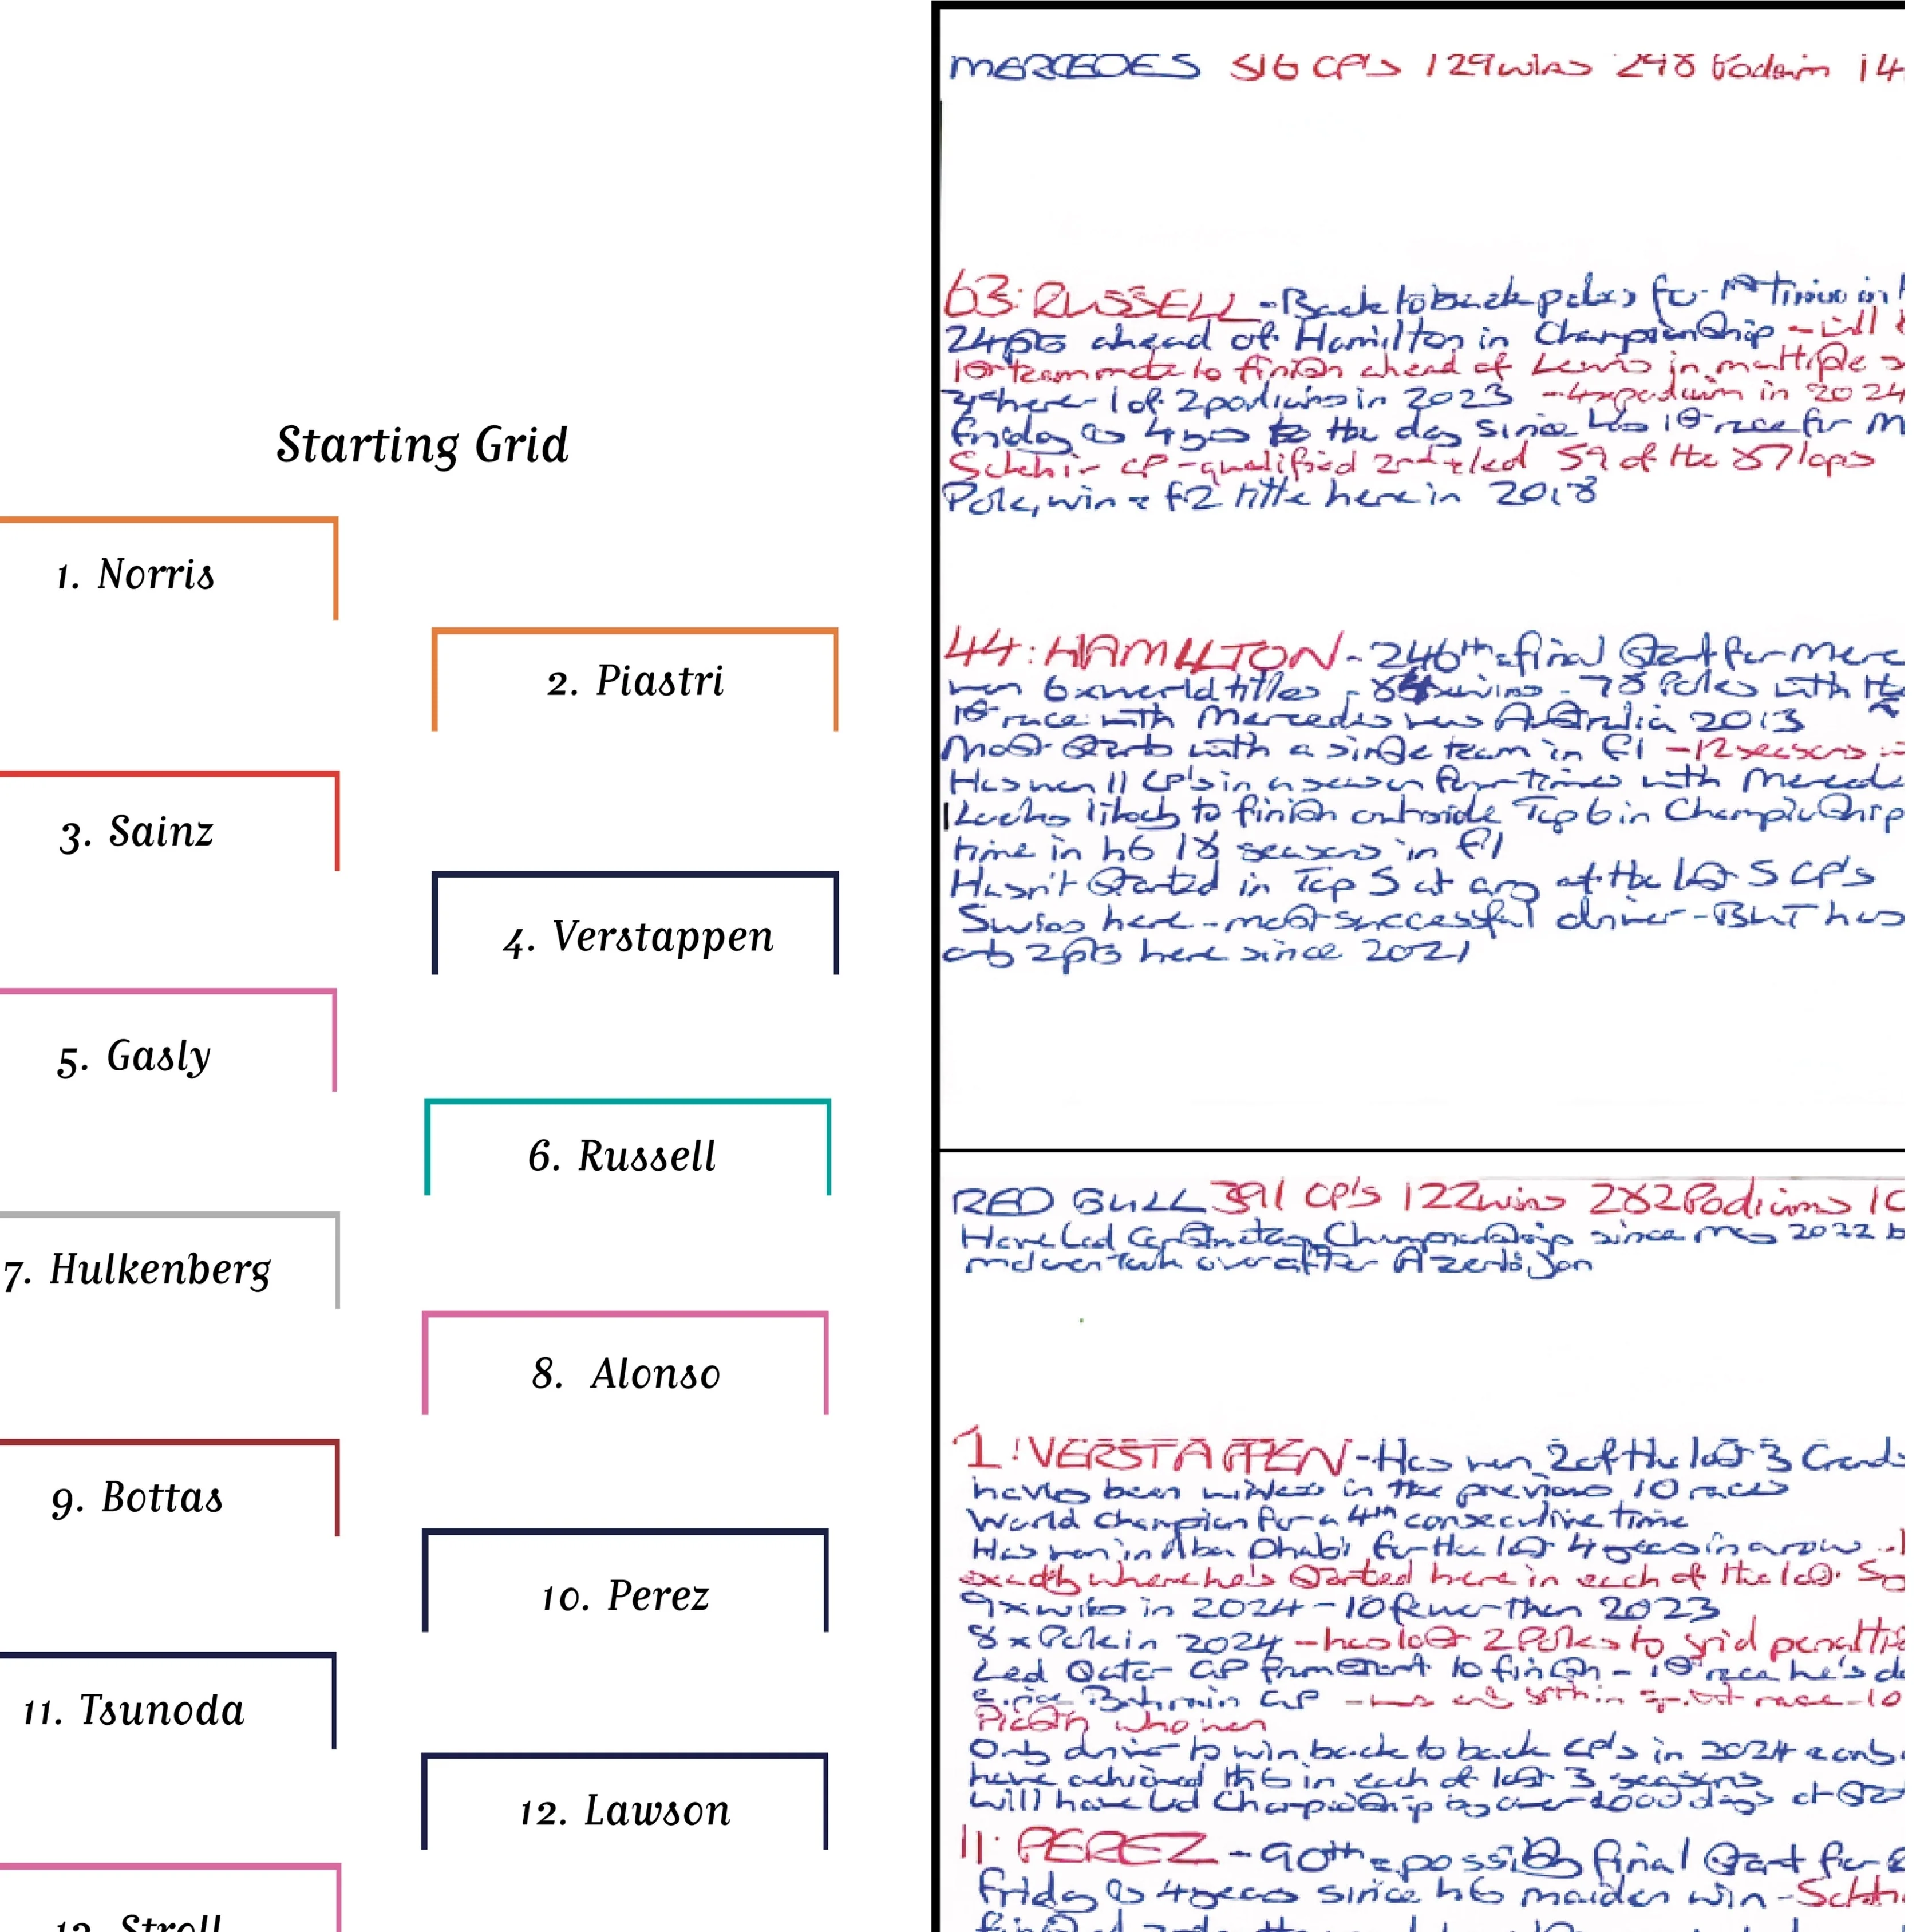 Starting Grid
1. Norris
2. Piastri
3. Sainz
4. Verstappen
5. Gasly
6. Russell
7. Hulkenberg
8. Alonso
9. Bottas
10. Perez
11. Tsunoda
12. Lawson
13. Stroll
MERCEDES 316 GP's 129 wins 298 Podium 14
63: RUSSELL - Back to back poles for 1st time in
24pts ahead of Hamilton in Championship - will
1st teammate to finish ahead of Lewis in multiple
here - 1 of 2 podiums in 2023 - 4x podium in 2024
Friday is 4 yrs to the day since his 1st race for M
Sakhir GP - qualified 2nd + led 59 of the 87 laps
Pole, win + F2 title here in 2018
44: HAMILTON - 246th + final Start for Merc
won 6x world titles - 84 wins - 78 Poles with the
1st race with Mercedes was Australia 2013
Most Starts with a single team in F1 - 12 seasons
Has won 11 GP's in a season four times with Merced
Looks likely to finish outside Top 6 in Championship
time in his 18 seasons in F1
Hasn't Started in Top 5 at any of the last 5 GP's
5 wins here - most successful driver - BUT has
only 2pts here since 2021
RED BULL 391 GP's 122 wins 282 Podiums 10
Have led Constructors Championship since May 2022 b
mclaren took over after Azerbaijan
1: VERSTAPPEN - Has won 2 of the last 3 Grands
having been winless in the previous 10 races
World Champion for a 4th consecutive time
Has won in Abu Dhabi for the last 4 years in a row
exactly where he's Started here in each of the last
9x wins in 2024 - 10 fewer than 2023
8 x Pole in 2024 - has lost 2 Poles to grid penaltie
Led Qatar GP from Start to finish - 1st race he's d
since Bahrain GP - was only 8th in sprint race - 10
Piastri who won
Only driver to win back to back GP's in 2024 +
have achieved this in each of last 3 seasons
will have led Championship by over 1000 days at
11: PEREZ - 90th + possibly final Start for
Friday is 4 years since his maiden win -